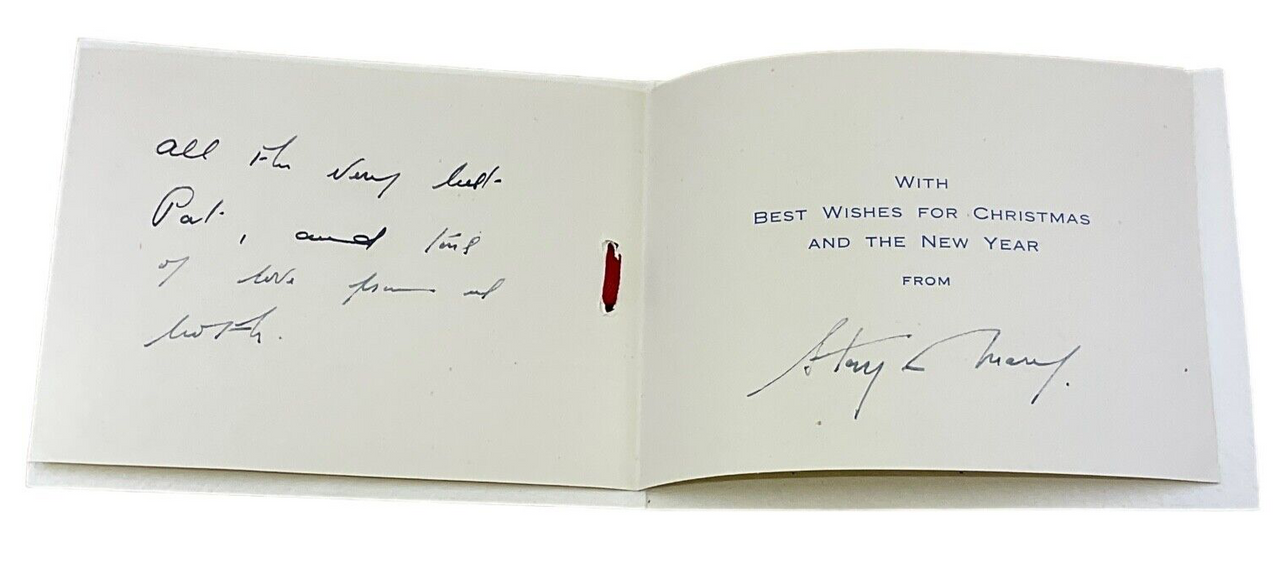 all the very best
Pat, and tons
of love from us
both.
WITH
BEST WISHES FOR CHRISTMAS
AND THE NEW YEAR
FROM
& Mary.